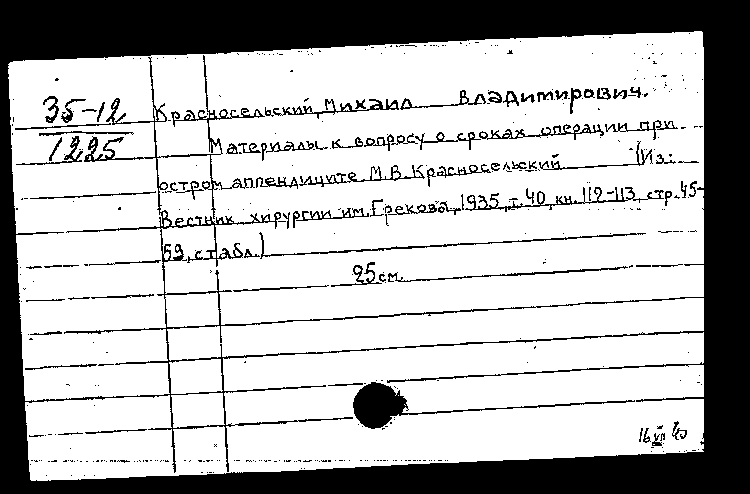 35-12
1225
Красносельский, Михаил Владимирович.
Материалы к вопросу о сроках операции при
остром аппендиците М.В. Красносельский (Из:
Вестник хирургии им. Грекова, 1935, т. 40, кн. 112-113, стр. 45-
59, с табл.)
25 см.
16 VII